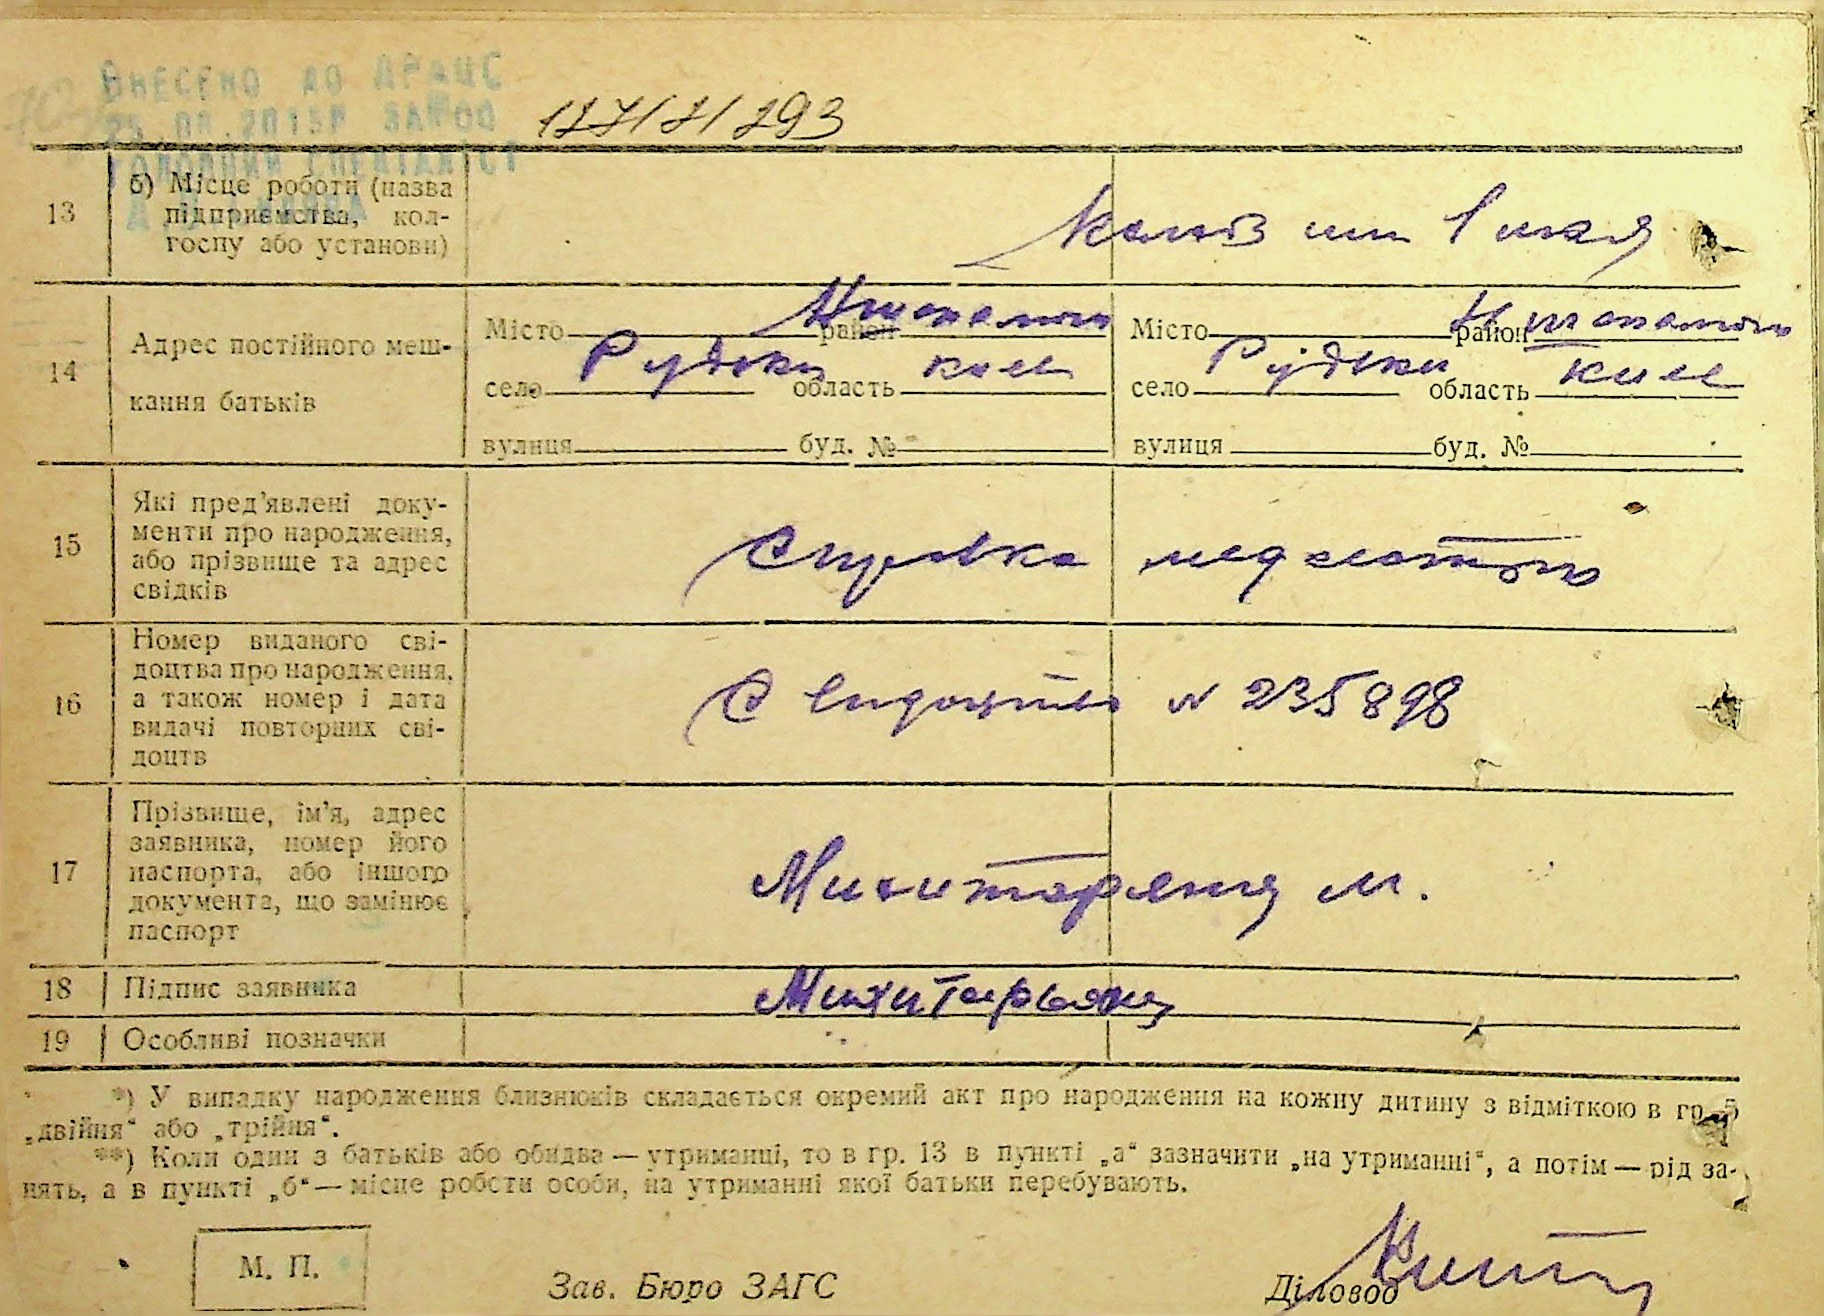 ВНЕСЕНО ДО ДРАЦС
177/7/293
13
б) Місце роботи (назва
підприємства, кол-
госпу або установи)
Колгоз им 1 мая
14
Адрес постійного меш-
кання батьків
Місто район
село Рудьки область киев
вулиця буд. №
Місто район
село Рудьки область киев
вулиця буд. №
15
Які пред'явлені доку-
менти про народження,
або прізвище та адрес
свідків
Справка
16
Номер виданого сві-
доцтва про народження,
а також номер і дата
видачі повторних сві-
доцтв
N 235898
17
Прізвище, ім'я, адрес
заявника, номер його
паспорта, або іншого
документа, що замінює
паспорт
Михитарянц М.
18 Підпис заявника
Михитарьянц
19 Особливі позначки
*) У випадку народження близнюків складається окремий акт про народження на кожну дитину з відміткою в гр. 5
„двійня“ або „трійня“.
**) Коли один з батьків або обидва — утриманці, то в гр. 13 в пункті „а“ зазначити „на утриманні“, а потім — рід за-
нять, а в пункті „б“ — місце роботи особи, на утриманні якої батьки перебувають.
М. П.
Зав. Бюро ЗАГС
Діловод